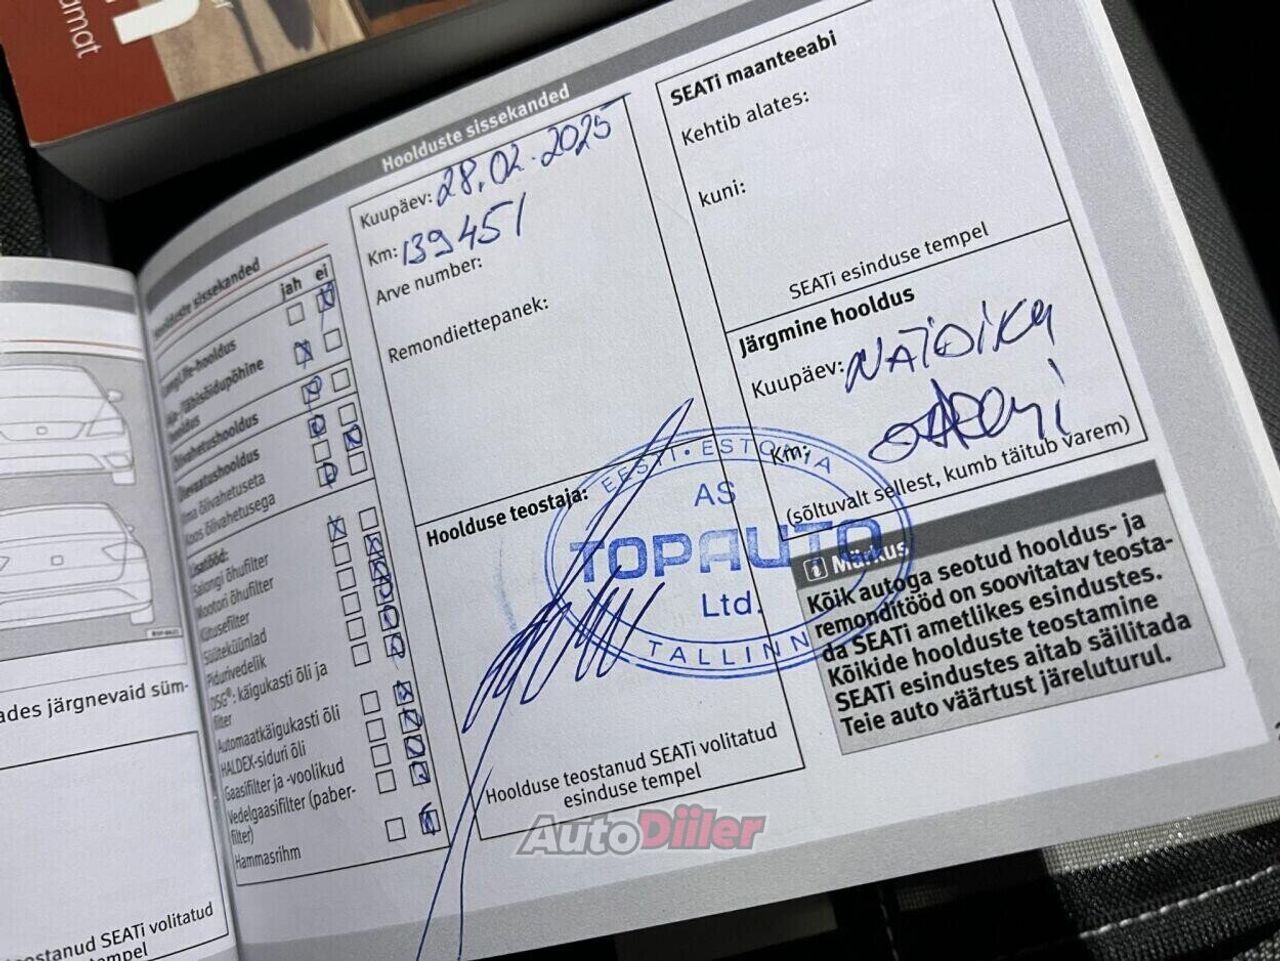 amat
Hoolduste sissekanded
Hoolduste sissekanded
jah ei
LongLife-hooldus
Aja-/läbisõidupõhine
hooldus
Õlivahetushooldus
Ülevaatushooldus
Ilma õlivahetuseta
Koos õlivahetusega
Lisatööd:
Salongi õhufilter
Mootori õhufilter
Kütusefilter
Süüteküünlad
Pidurivedelik
DSG®: käigukasti õli ja
filter
Automaatkäigukasti õli
HALDEX-siduri õli
Gaasifilter ja -voolikud
Vedelgaasifilter (paber-
filter)
Hammasrihm
Kuupäev: 28.02.2025
Km: 139451
Arve number:
Remondiettepanek:
Hoolduse teostaja:
EESTI • ESTONIA
AS
TOPAUTO
Ltd.
TALLINN
Hoolduse teostanud SEATi volitatud
esinduse tempel
SEATi maanteeabi
Kehtib alates:
kuni:
SEATi esinduse tempel
Järgmine hooldus
Kuupäev: NÄIDIKU
Km:
(sõltuvalt sellest, kumb täitub varem)
Märkus
Kõik autoga seotud hooldus- ja
remonditööd on soovitatav teosta-
da SEATi ametlikes esindustes.
Kõikide hoolduste teostamine
SEATi esindustes aitab säilitada
Teie auto väärtust järeluturul.
ades järgnevaid süm-
eostanud SEATi volitatud
tempel
AutoDiiler